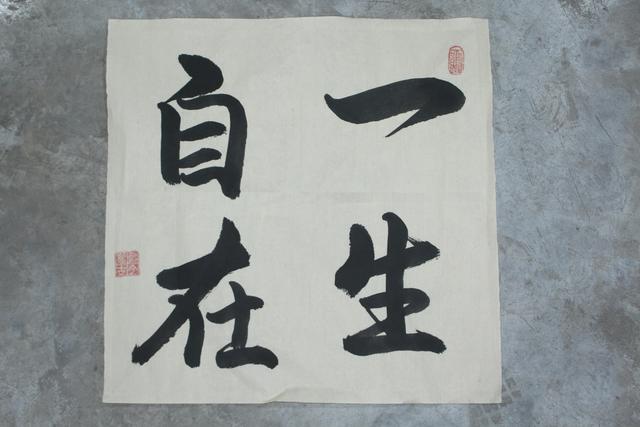 一生
自在